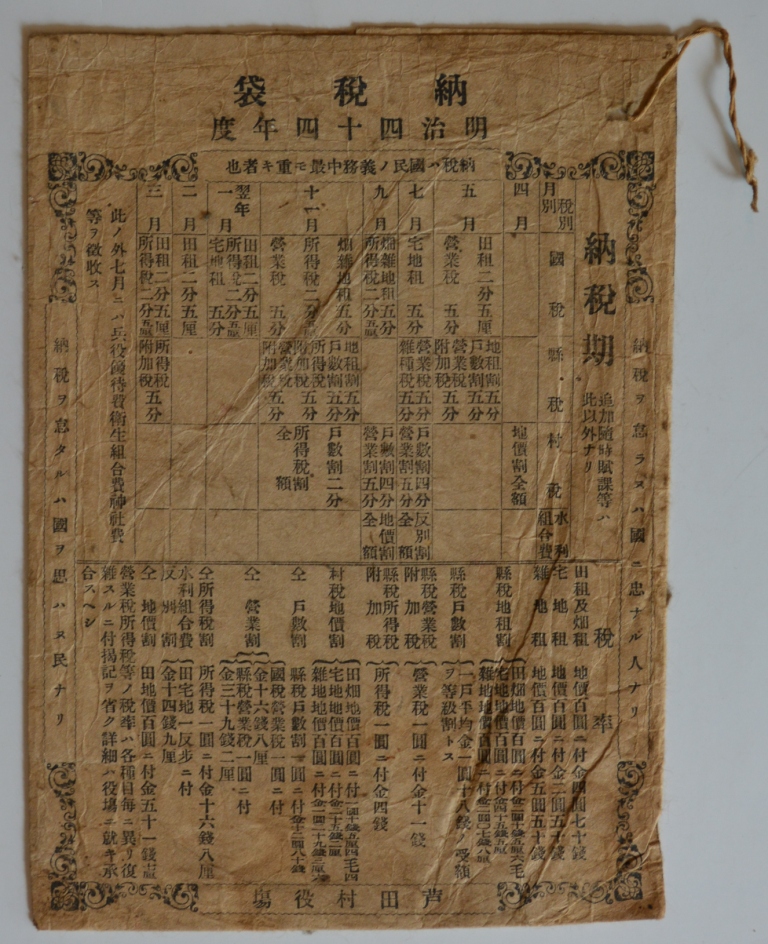 納税袋
明治四十四年度
納税ハ國民ノ義務中最モ重キ者也
納税ヲ怠ラヌハ國ニ忠ナル人ナリ
納税期
追加随時賦課等ハ
此以外ナリ
税別
月別
國税
縣税
村税
水利
組合費
四月
地價割全額
五月
田租二分五厘
營業税五分
地租割五分
戸數割五分
營業税
附加税五分
七月
宅地租五分
營業税五分
雜種税五分
戸數割四分
營業割五分
反別割
全額
九月
畑雜地租五分
所得税二分五厘
戸數割四分
營業割五分
地價割
全額
十一月
畑雜地租五分
所得税二分五厘
營業税五分
地租割五分
戸數割五分
所得税
附加税五分
營業税
附加税五分
戸數割二分
所得税割
全額
翌年
一月
田租二分五厘
所得税二分五厘
宅地租五分
二月
田租二分五厘
三月
田租二分五厘
所得税二分五厘
所得税
附加税五分
此ノ外七月ニハ兵役優待費衛生組合費神社費
等ヲ徴收ス
税率
田租及畑租 地價百圓ニ付金四圓七十錢
宅地租 地價百圓ニ付金二圓五十錢
雜地租 地價百圓ニ付金五圓五十錢
縣税地租割
田畑地價百圓ニ付
宅地地價百圓ニ付
雜地地價百圓ニ付
縣税戸數割
一戸平均金一圓十八錢
ヲ等級割トス
縣税營業税
附加税
營業税一圓ニ付金十一錢
縣税所得税
附加税
所得税一圓ニ付金四錢
村税地價割
田畑地價百圓ニ付
宅地地價百圓ニ付
雜地地價百圓ニ付
仝戸數割
縣税戸數割一圓ニ付
仝營業割
國税營業税一圓ニ付
金十六錢八厘
縣税營業税一圓ニ付
金三十九錢二厘
仝所得税割
所得税一圓ニ付金十六錢八厘
水利組合費
反別割
田宅地一反歩ニ付
金十四錢九厘
仝地價割
田地價百圓ニ付金五十一錢
營業税所得税等ノ税率ハ各種目毎ニ異リ復
雜スルニ付掲記ヲ省ク詳細ハ役場ニ就キ承
合スヘシ
納税ヲ怠タルハ國ヲ思ハヌ民ナリ
芦田村役場